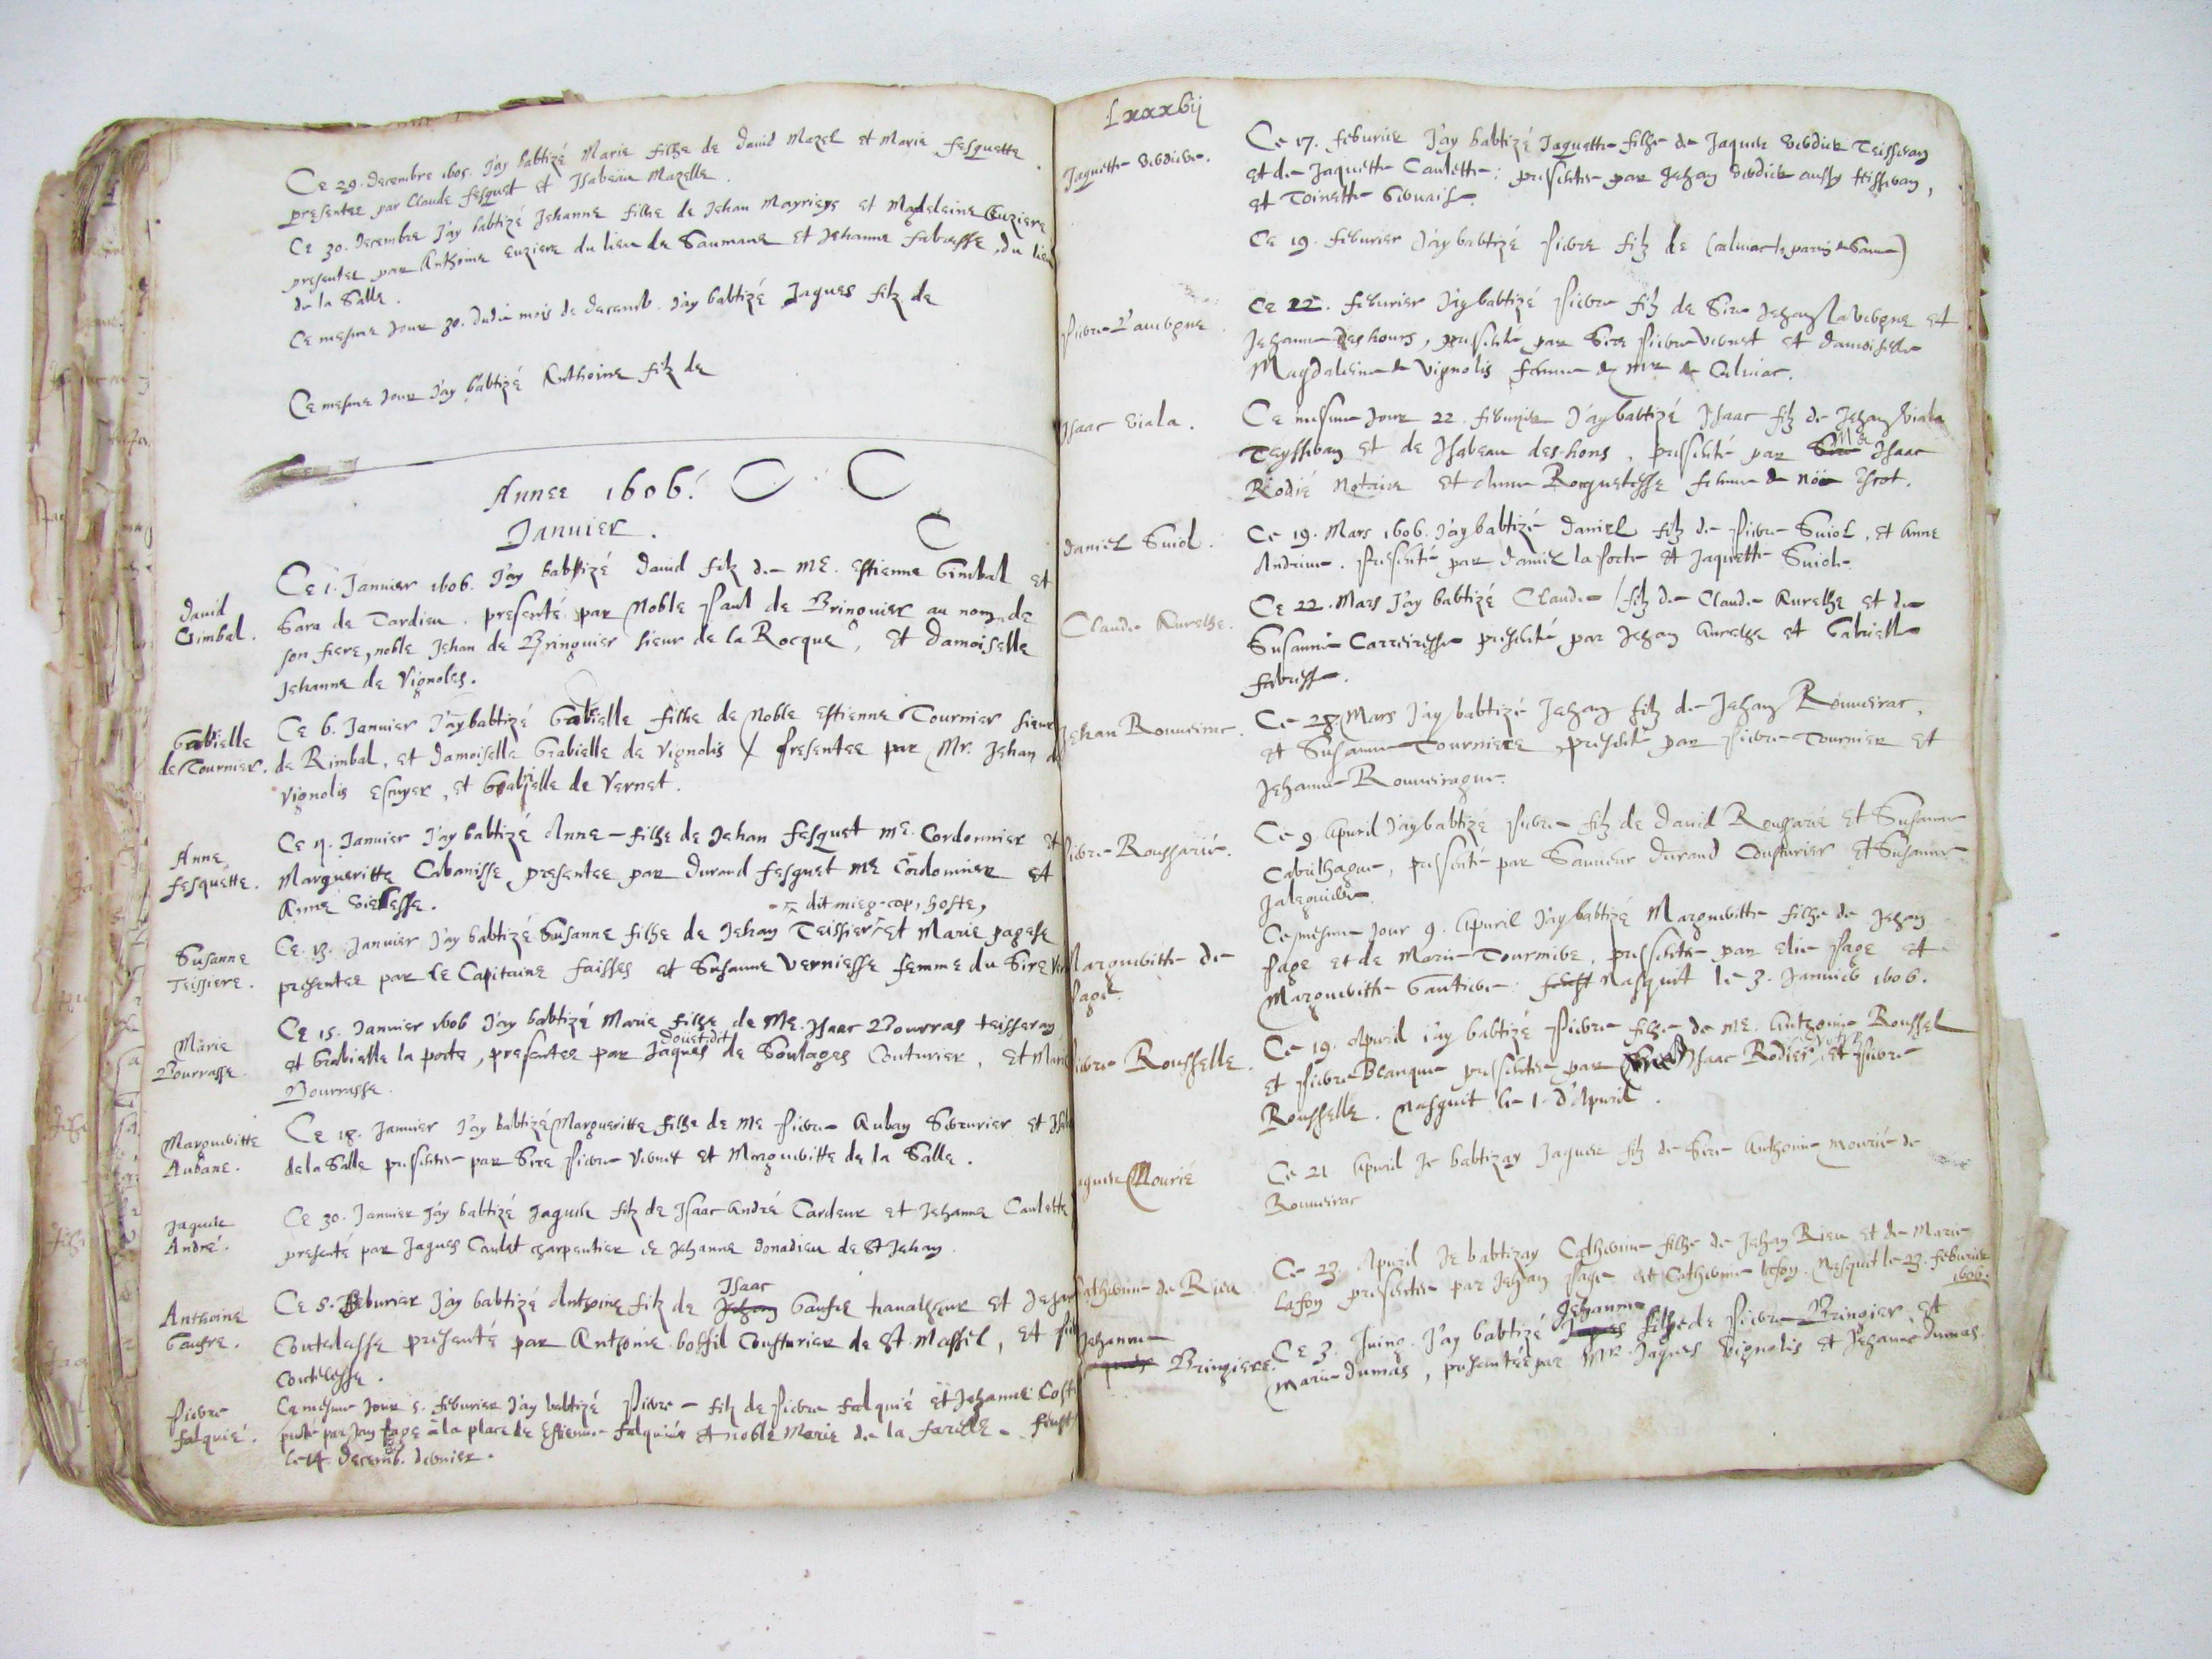 Ce 29. Decembre 1605. J'ay babtizé Marie filhe de David Mazel et Marie fesquette
presentee par Claude fesquet et Isabeau Mazelle.
Ce 30. Decembre J'ay babtizé Jehanne filhe de Jehan Mayrieys et Magdeleine Euziere
presentee par Anthoine Euziere du lieu de Saumane et Jehanne fabresse, du lieu
de la Salle.
Ce mesme Jour 30. dudit mois de decemb. J'ay babtizé Jaques filz de
Ce mesme Jour J'ay babtizé Anthoine filz de
Annee 1606.
Januier.
David
Gimbal.
Ce 1. Januier 1606. J'ay babtizé Dauid filz de ME. Estienne Gimbal et
Sara de Tardieu. presenté par Noble Paul de Bringuier au nom de
son frere, noble Jehan de Bringuier sieur de la Rocque, et Damoiselle
Jehanne de Vignoles.
Gabrielle
de Tournier.
Ce 6. Januier J'ay babtizé Gabrielle filhe de Noble Estienne Tournier sieur
de Rimbal, et Damoiselle Gabrielle de Vignolis presentee par Mr. Jehan de
Vignolis Escuyer, et Gabrielle de Vernet.
Anne
fesquette.
Ce Januier J'ay babtizé Anne filhe de Jehan fesquet ME. Cordonnier et
Margueritte Cabanisse presentee par Durand fesquet ME Cordonnier et
Anne
dit mieg-cop, hoste,
Susanne
Teissiere.
Ce 13. Januier J'ay babtizé Susanne filhe de Jehan Teissier et Marie pagese
presentee par le Capitaine faisses et Susanne Verniesse femme du Sire
Marie
Bourrasse.
Ce 15. Januier 1606 J'ay babtizé Marie filhe de ME. Isaac Bourras teisseran
et Gabrielle la porte, presentee par Jaques de Soulages Couturier, et Marie
Bourrasse.
Margueritte
Aubane.
Ce 18. Januier J'ay babtizé Margueritte filhe de ME Pierre Auban Serrurier et
de la Salle presentee par Sire Pierre Vernet et Margueritte de la Salle.
Jaques
André.
Ce 30. Januier J'ay babtizé Jaques filz de Isaac André Cardeur et Jehanne Caulette
presenté par Jaques Caulet charpentier et Jehanne Donadieu de St Jehan.
Isaac
Anthoine
Gaufre.
Ce 5. feburier J'ay babtizé Anthoine filz de Jehan Gaufre trauailheur et
presenté par Anthoine Cousturier de St. et
Pierre
falquié.
Ce mesme Jour 5. feburier J'ay babtizé Pierre filz de Pierre falquié et Jehanne
par Jan page à la place de Estienne falquié et noble Marie de la farelle
le 14. decemb. dernier.
Lxxxvij
Jaquette
Ce 17. feburier J'ay babtizé Jaquette filhe de Jaques Teisseran
et de Jaquette Caulette: presentee par Jehan aussy teisseran,
et Toinette
Ce 19. feburier J'ay babtizé Pierre filz de
Pierre Lauergne.
Ce 22. feburier J'ay babtizé Pierre filz de Sire Jehan Lauergne et
Jehanne Deshours, presenté par Sire Pierre Vernet et damoiselle
Magdaleine de Vignolis femme de Mr de Caluiac.
Isaac Viala.
Ce mesme Jour 22. feburier J'ay babtizé Isaac filz de Jehan Viala
Teysseran et de Isabeau des-hons, presenté par Isaac
Rodié Notaire et Anne Rocquetesse femme de
Daniel Suiol.
Ce 19. Mars 1606. J'ay babtizé Daniel filz de Pierre Suiol, et Anne
Andriue. Presenté par Daniel la porte et Jaquette Suiole.
Claude Aurelhe.
Ce 22. Mars J'ay babtizé Claude filz de Claude Aurelhe et de
Susanne Carreiresse presenté par Jehan Aurelhe et Gabrielle
fabresse.
Jehan Rouueirac.
Ce 28. Mars J'ay babtizé Jehan filz de Jehan Rouueirac,
et Susanne Tourniere presenté par Pierre Tournier et
Jehanne Rouueirague.
Pierre Roussarié.
Ce 9. Apuril J'ay babtizé Pierre filz de Dauid Roussarié et Susanne
presenté par Sauueur Durand Cousturier et Susanne
Jaleguiere.
Margueritte de
Page.
Ce mesme Jour 9. Apuril J'ay babtizé Margueritte filhe de Jehan
Page et de Marie Tourniere, presentee par Elie Page et
Margueritte Gautiere. Nasquit le 3. Januier 1606.
Pierre Rousselle.
Ce 19. Apuril J'ay babtizé Pierre filhe de ME. Anthoine Roussel
et Pierre Blanque presentee par Isaac Rodier et Pierre
Rousselle. Nasquit le 1. d'Apuril.
Jaques Mourié
Ce 21 Apuril Je babtizay Jaques filz de Sire Anthoine Mourié de
Rouueirac
Catherine de Rieu
Ce 23. Apuril Je babtizay Catherine filhe de Jehan Rieu et de Marie
Lafon presentee par Jehan Page et Catherine lafon. Nasquit le 23. feburier
1606.
Jehanne
Jehanne
Bringiere.
Ce 3. Juing. J'ay babtizé filhe de Pierre Bringier et
Marie Dumas, presentée par Mr. Jaques Vignolis et Jehanne Dumas.